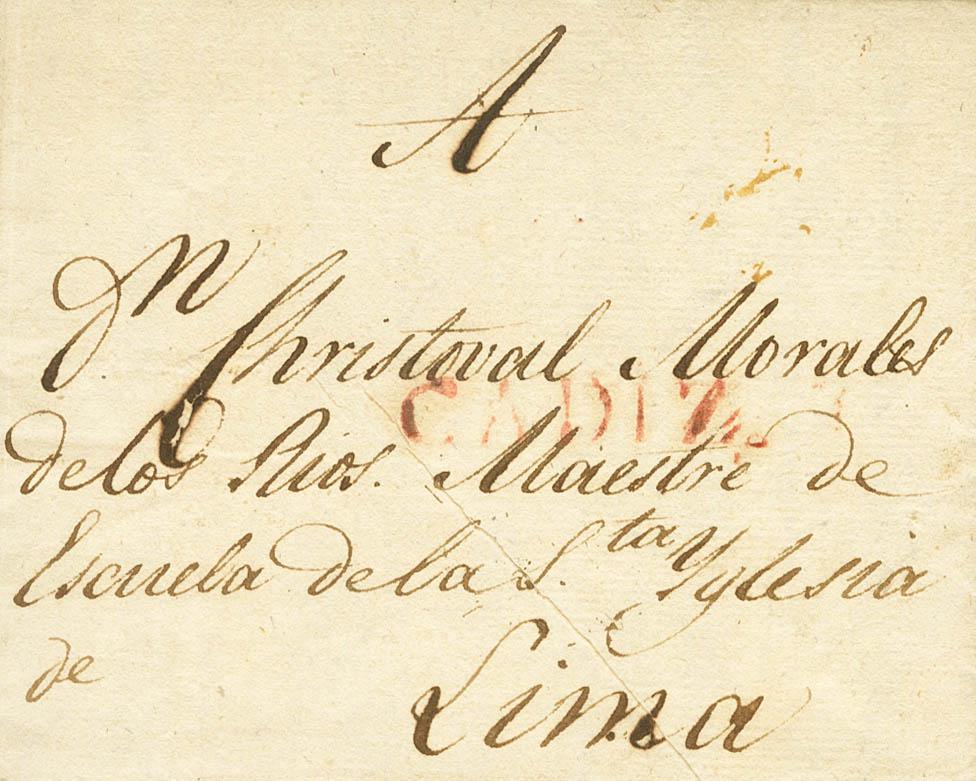 A
Dn Christoval Morales
CADIZ
de los Rios. Maestre de
Escuela de la S.ta Yglesia
de
Lima